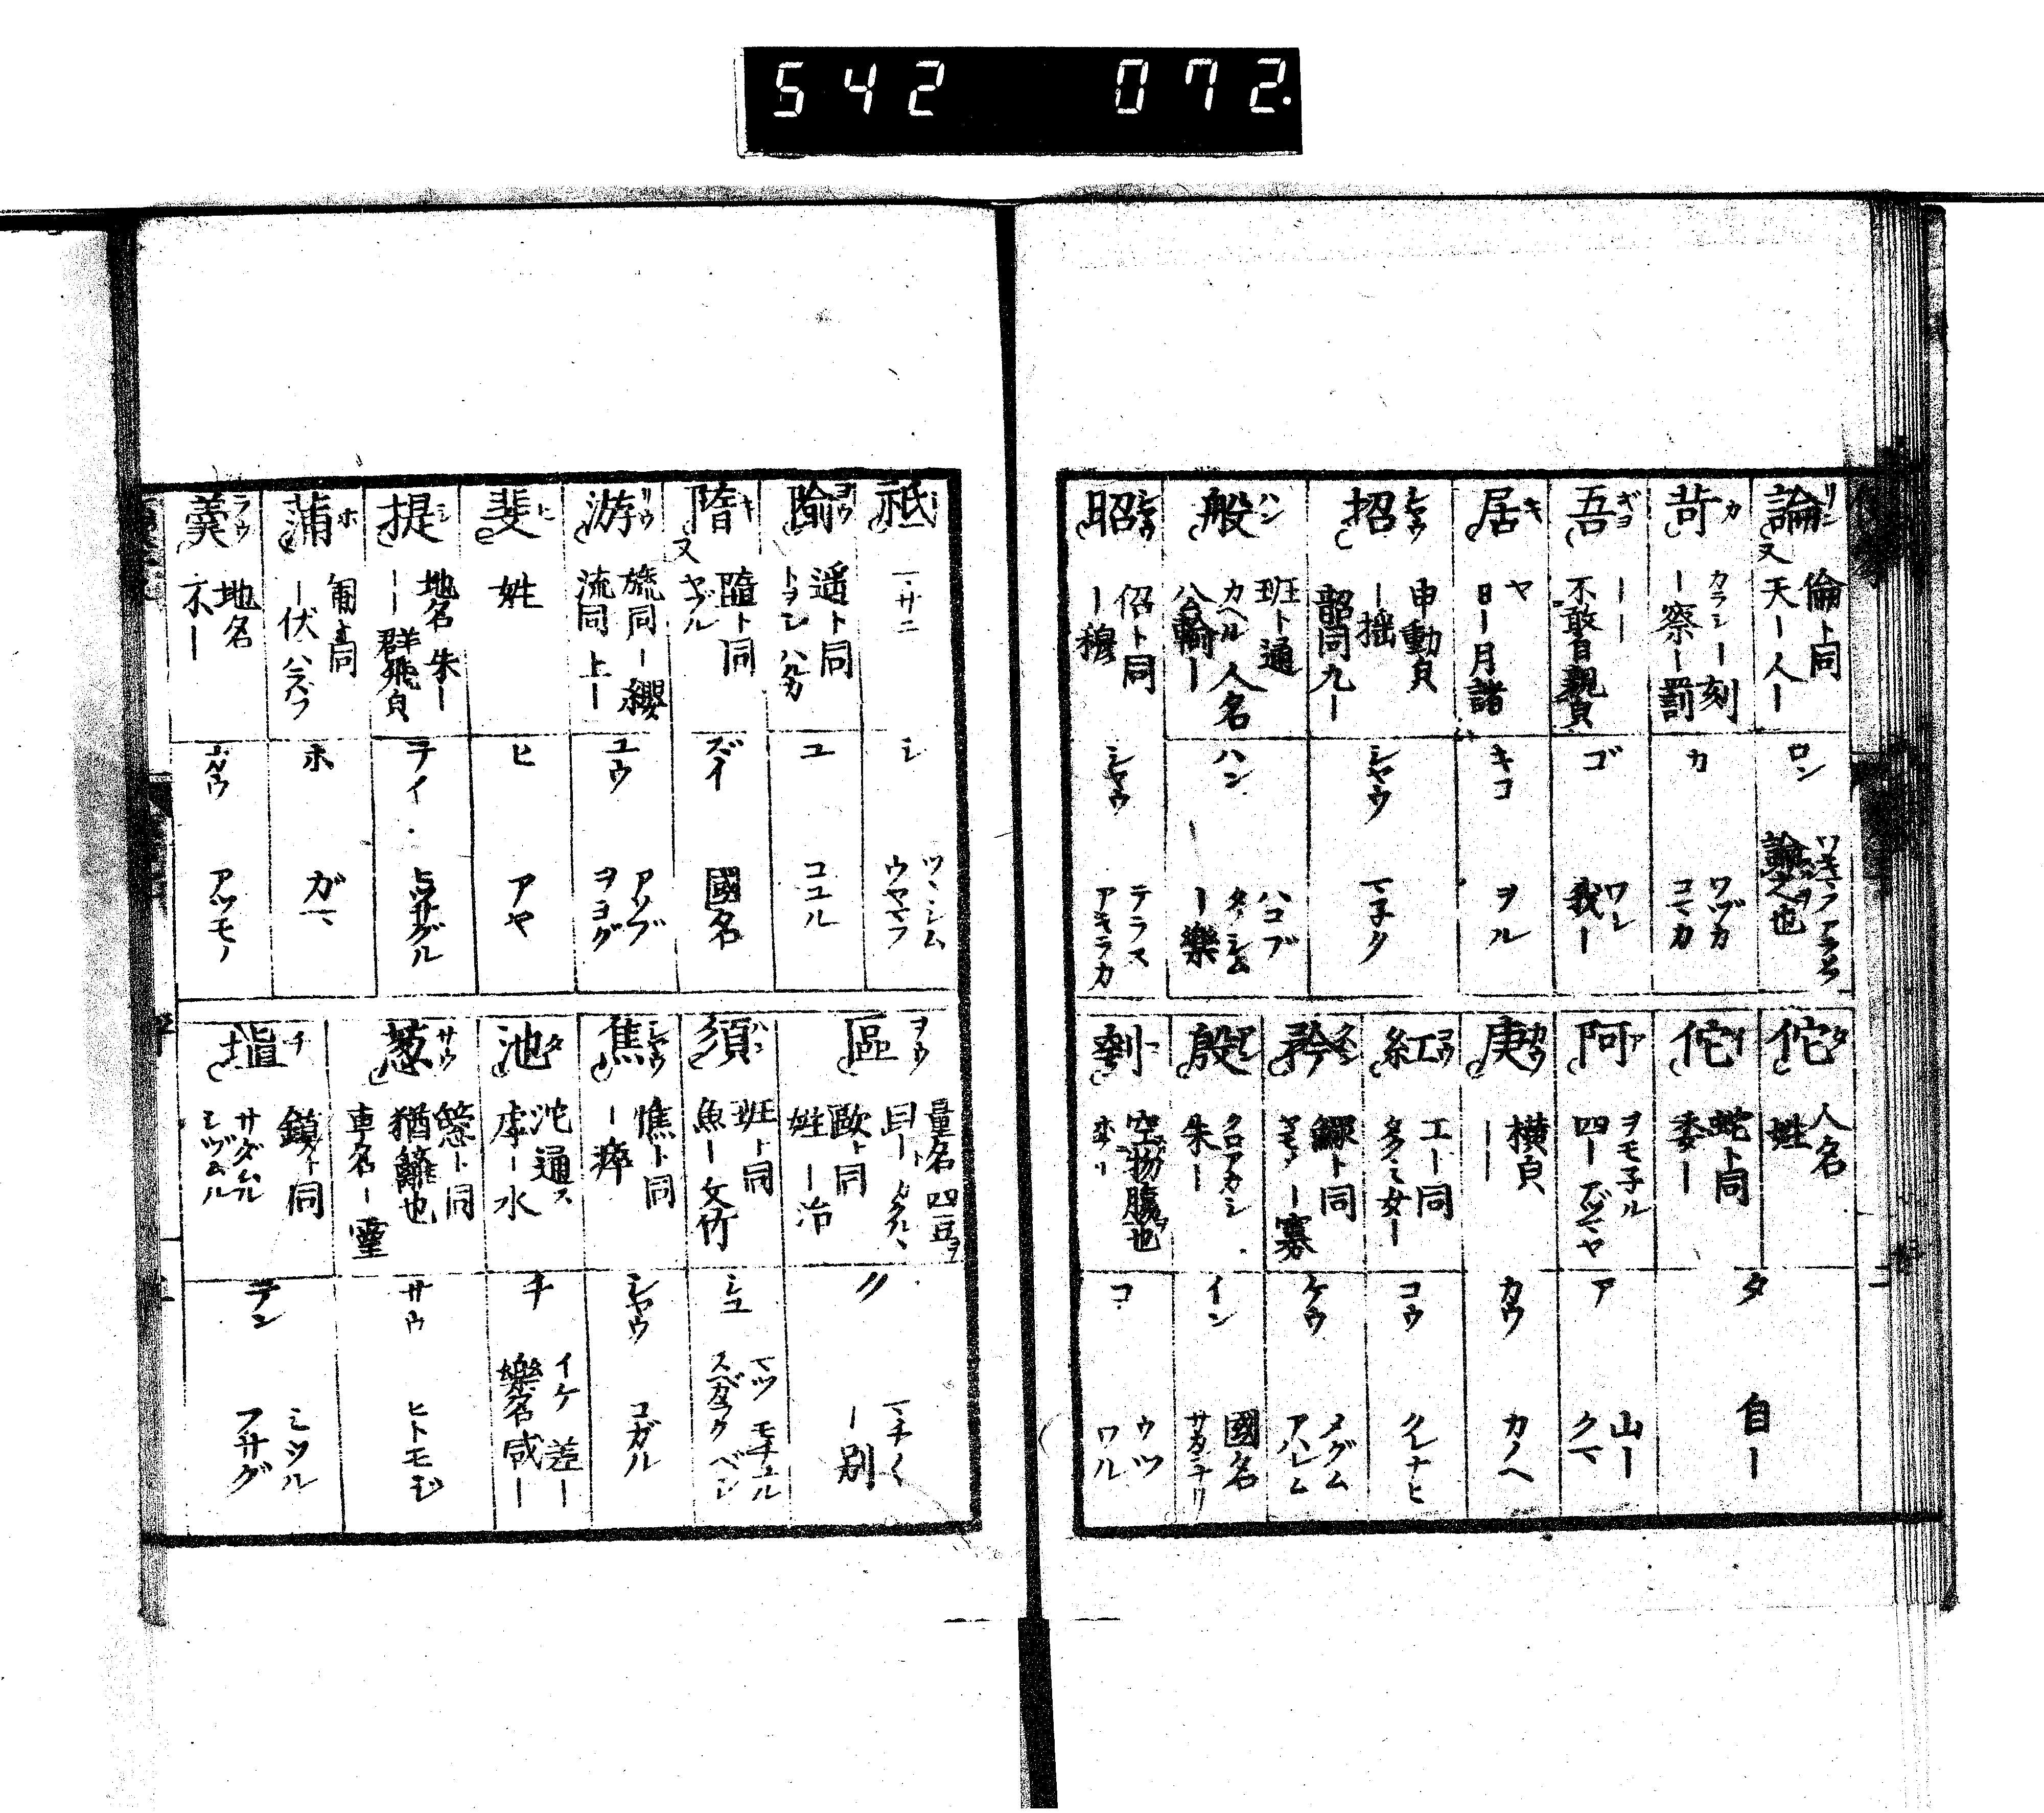 542 072.
論 リン
倫ト同
又 天ー人ー
ロン
苛 カ
カラシ ー刻
ー察ー罰
カ
ワヅカ
コマカ
吾 ギヨ
ーー
不敢自親皃
ゴ
ワレ
我ー
居 キ
ヤ
日ー月諸
キコ
ヲル
招 シヤウ
申動皃
ー揺
韶同九ー
シヤウ
マネク
般 ハン
班ト通
カヘル 人名
公輸ー
ハン
ハコブ
タノシム
ー樂
昭 シヤウ
佋ト同
ー穆
シヤウ
テラス
アキラカ
佗 タ
人名
姓
佗 イ
蛇ト同
委ー
タ
自ー
阿 ア
ヲモ子ル
四ー アヅマヤ
ア
山ー
クマ
庚 カウ
横皃
ーー
カウ
カノヘ
紅 コウ
工ー同
女ー
コウ
クレナヒ
矜
鰥ト同
ー寡
ケウ
メグム
アハレム
殷 アン
クロアカシ
朱ー
イン
國名
サカンナリ
刳
空物腹也
コ
ウツ
ワル
祗 シ
シ
ツヽシム
ウヤマフ
隃 ヨウ
遥ト同
トヲシ ハルカ
ユ
コユル
隋 キ
隳ト同
又 ヤブル
ズイ
國名
游 リウ
旒同ー纓
流同 上ー
ユウ
アソブ
ヲヨグ
斐 ヒ
姓
ヒ
アヤ
提 シ
地名 朱ー
ーー群飛皃
テイ
ヒツサグル
蒲 ホ
匍ト同
ー伏 ハラバフ
ホ
ガマ
羹 ラウ
地名
不ー
アツモノ
區 ヲウ
量名 四豆ヲ
歐ト同
姓ー冶
〃
マチ〱
ー別
須 ハン
班ト同
魚ー文竹
シユ
マツ モチユル
スベカラク ベシ
焦 シヤウ
憔ト同
ー瘁
シヤウ
コガル
池 タ
沱通ス
虖ー水
チ
イケ 差ー
樂名咸ー
葱 サウ
窻ト同
猶籬也
車名ー靈
サウ
ヒトモジ
塡 チ
鎮ト同
サダムル
シヅムル
テン
ミツル
フサグ